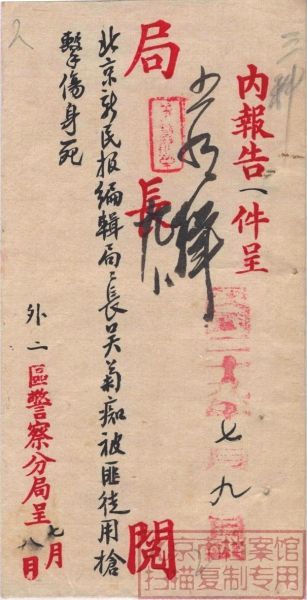 三科
内報告一件呈
七月九日
局長閱
北京新民报編輯局〻長吴菊痴被匪徒用槍
擊傷身死
外二區警察分局呈
七月八日
北京市档案馆
扫描复制专用